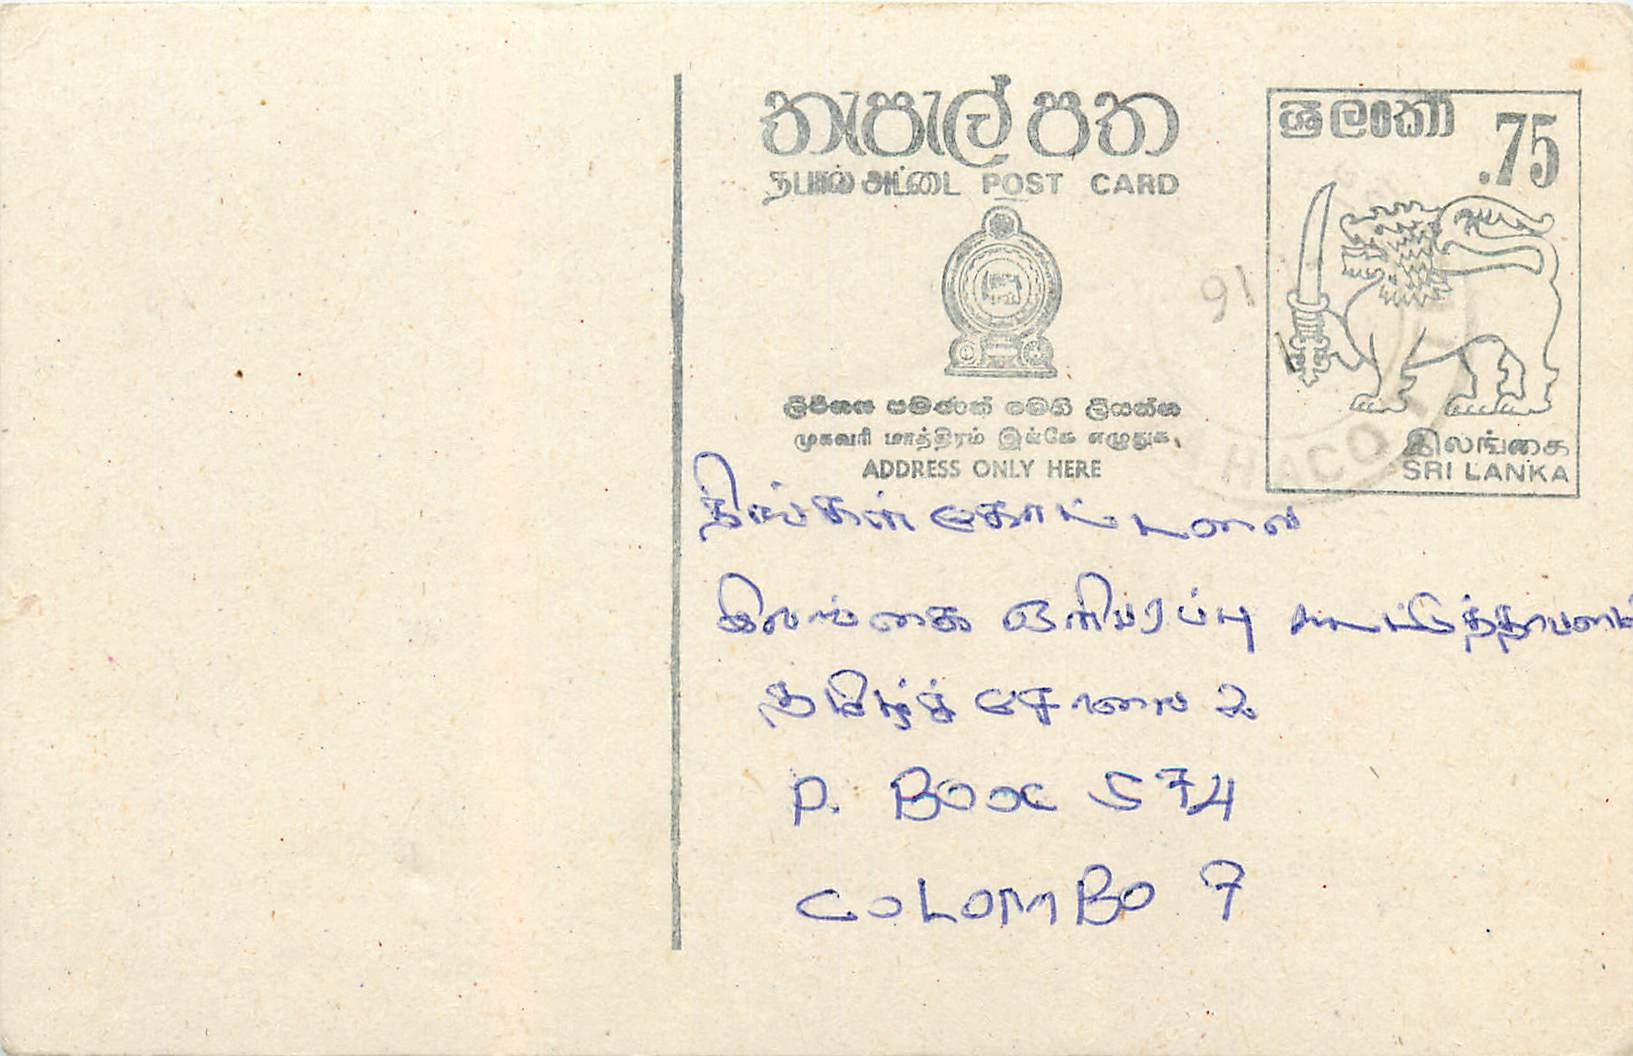 තැපැල් පත
தபால் அட்டை POST CARD
ශ්‍රී ලංකා .75
ලිපිනය පමණක් මෙහි ලියන්න
முகவரி மாத்திரம் இங்கே எழுதுக
ADDRESS ONLY HERE
இலங்கை
SRI LANKA
91 1
திங்கள்
இலங்கை ஒளிபரப்பு கூட்டுத்தாபனம்
தமிழ்ச் சேவை 2
P. BOX 574
COLOMBO 7